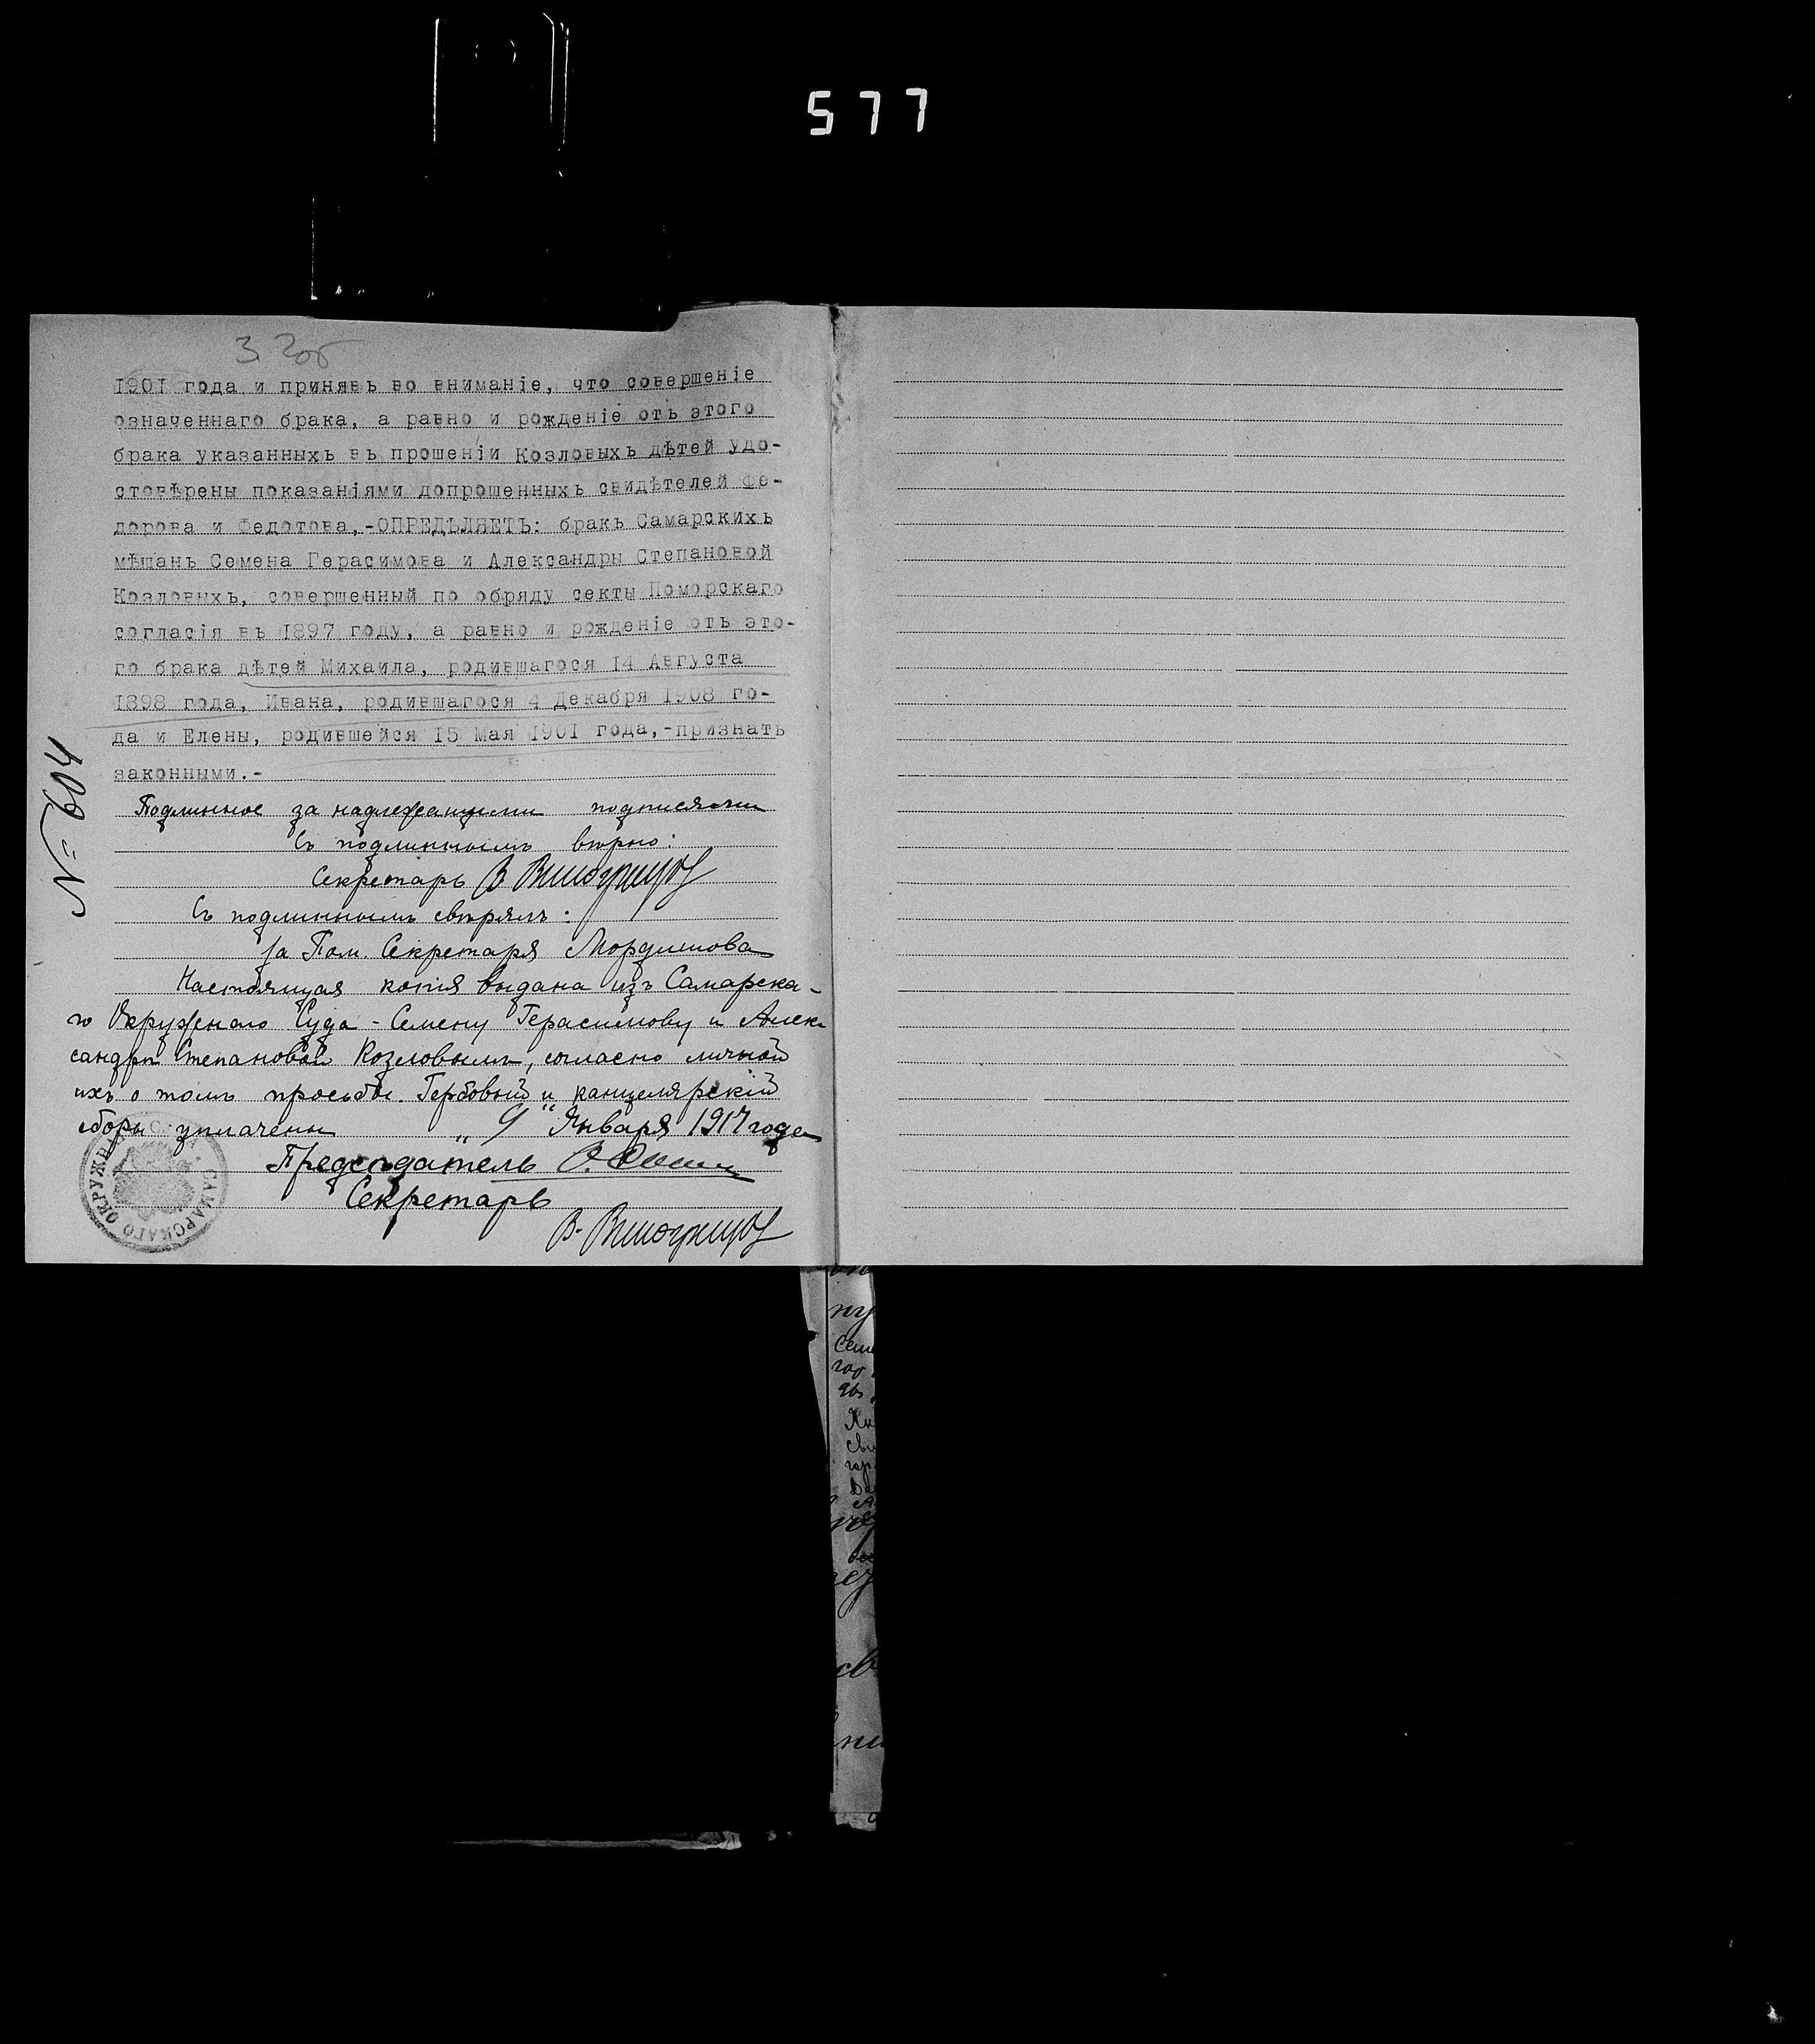 577
1901 года и принявъ во вниманіе, что совершеніе
означеннаго брака, а равно и рожденіе отъ этого
брака указанныхъ въ прошеніи Козловыхъ дѣтей удо-
стовѣрены показаніями допрошенныхъ свидѣтелей Фе-
дорова и Федотова,-ОПРЕДѢЛЯЕТЪ: бракъ Самарскихъ
мѣщанъ Семена Герасимова и Александры Степановой
Козловыхъ, совершенный по обряду секты Поморскаго
согласія въ 1897 году, а равно и рожденіе отъ это-
го брака дѣтей Михаила, родившагося 14 Августа
1898 года, Ивана, родившагося 4 Декабря 1908 го-
да и Елены, родившейся 15 Мая 1901 года,-признать
законными.-
№ 604
Подлинное за надлежащими подписями
Съ подлиннымъ вѣрно:
Секретарь В Виноградовъ
Съ подлиннымъ свѣрялъ:
за Пом. Секретаря
Настоящая копія выдана изъ Самарска-
го Окружного Суда - Семену Герасимову и Алек
сандрѣ Степановой Козловымъ, согласно личной
ихъ о томъ просьбѣ. Гербовый и канцелярскій
сборы уплачены „ 9 " Января 1917 года
Предсѣдатель
Секретарь
В. Виноградовъ
САМАРСКАГО ОКРУЖН